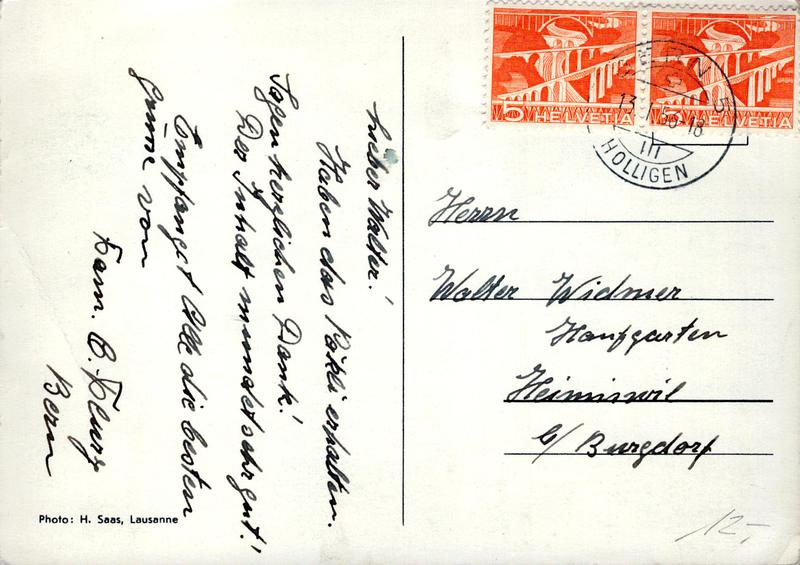 Lieber Walter!
Haben das Päkli erhalten.
Sagen herzlichen Dank!
Der Inhalt mundet sehr gut!
Empfangt Alle die besten
Grüsse von
Fam.
Bern
Photo: H. Saas, Lausanne
5 HELVETIA
HELVETIA
BERN 5
13. 1.56-18
III
HOLLIGEN
Herrn
Walter Widmer
Hanfgarten
Heimiswil
b/ Burgdorf
12.-